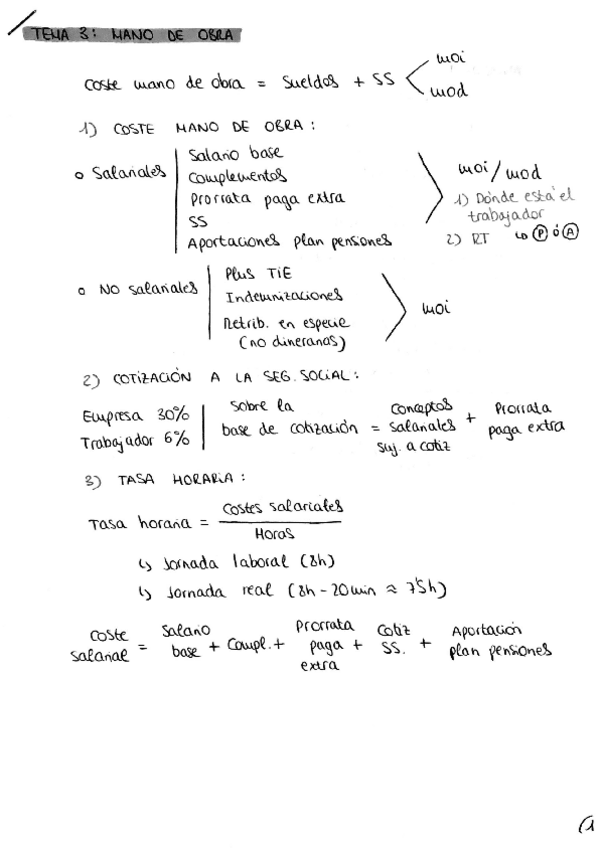 TEMA 3: MANO DE OBRA
coste mano de obra = sueldos + SS
moi
mod
1) COSTE MANO DE OBRA:
o Salariales
Salario base
Complementos
Prorrata paga extra
SS
Aportaciones plan pensiones
moi/mod
1) Dónde está el
trabajador
2) RT ↳ P ó A
o NO salariales
Plus TIE
Indemnizaciones
Retrib. en especie
(no dinerarias)
moi
2) COTIZACIÓN A LA SEG. SOCIAL:
Empresa 30%
Trabajador 6%
sobre la
base de cotización = conceptos
salariales
suj. a cotiz
+ Prorrata
paga extra
3) TASA HORARIA:
Tasa horaria = costes salariales
Horas
↳ Jornada laboral (8h)
↳ Jornada real (8h - 20min ≈ 7'5h)
coste
salarial = salario
base + compl. + Prorrata
paga
extra + cotiz
SS. + Aportación
plan pensiones